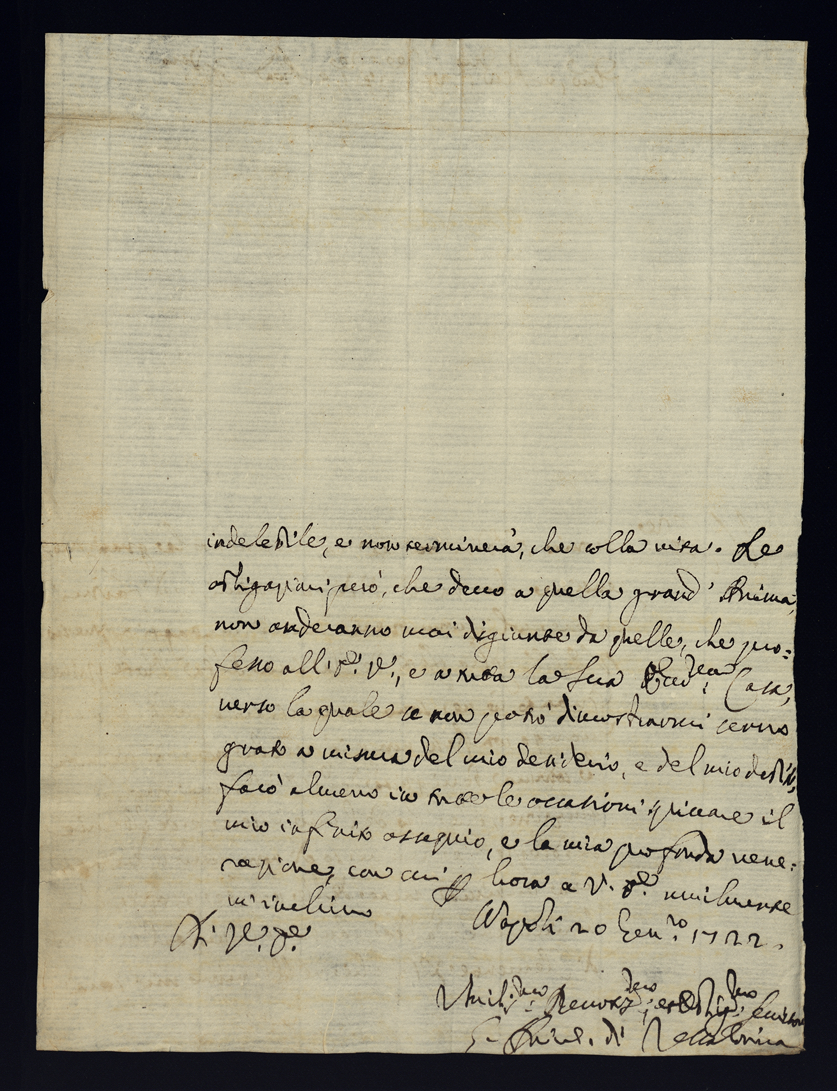 indelebile, e non terminerà, che colla vita. Le
obligazioni però, che devo a quella grand' Anima,
non anderanno mai disgiunte da quelle, che pro=
fesso all' V. E., e a tutta la sua Casa,
verso la quale se non potrò dimostrarmi servo
grato a misura del mio desiderio, e del mio debito,
farò almeno in tutte le occasioni spiccare il
mio infinito ossequio, e la mia profonda vene=
razione, con cui hora a V. E. umilmente
m'inchino
Di V. E. Napoli 20 Gen.ro 1722.
Umil.mo Devot.mo, et Oblig.mo Servitore
di